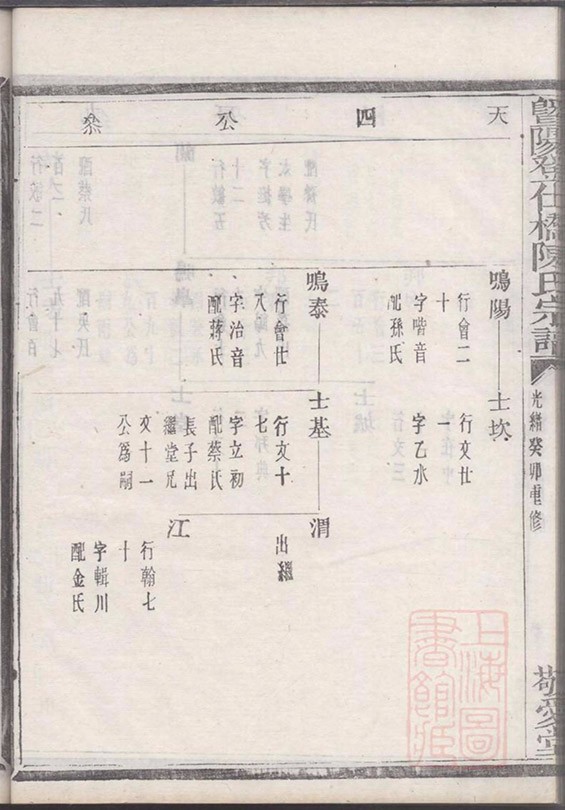 暨陽登仕橋陳氏宗譜
光緒癸卯重修
敬愛堂
天四公系
鳴陽
行會二
十
字喈音
配孫氏
士坎
行文廿
一
字乙水
鳴泰
行會廿
八
字治音
配蔣氏
士基
行文十
七
字立初
配蔡氏
長子出
繼堂兄
文十一
公為嗣
渭
出繼
江
行翰七
十
字輯川
配金氏
上海圖
書館藏